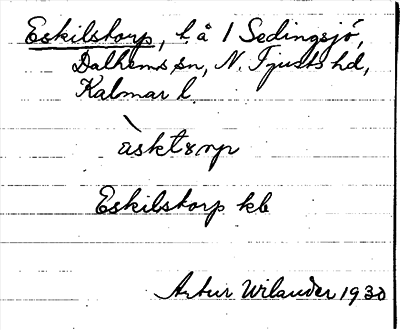 Eskilstorp, t. å 1 Sedingsjö,
Dalhems sn, N. Tjusts hd,
Kalmar l.
Eskilstorp kb
Artur Wilander 1930